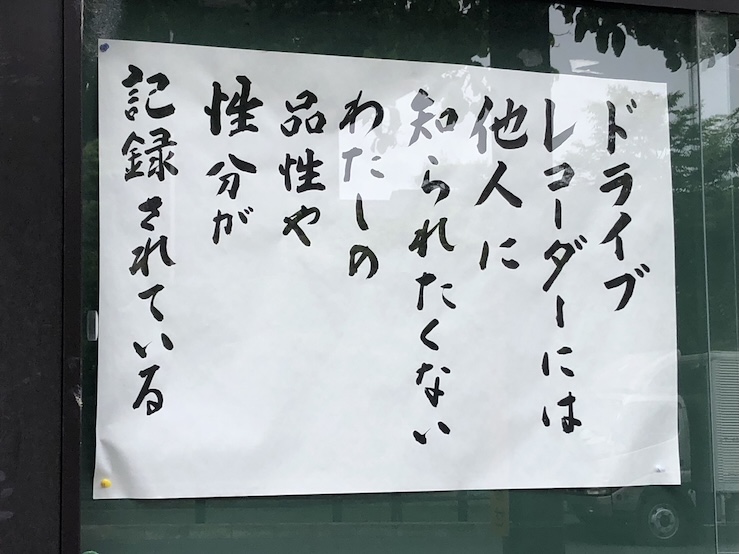 ドライブ
レコーダーには
他人に
知られたくない
わたしの
品性や
性分が
記録されている